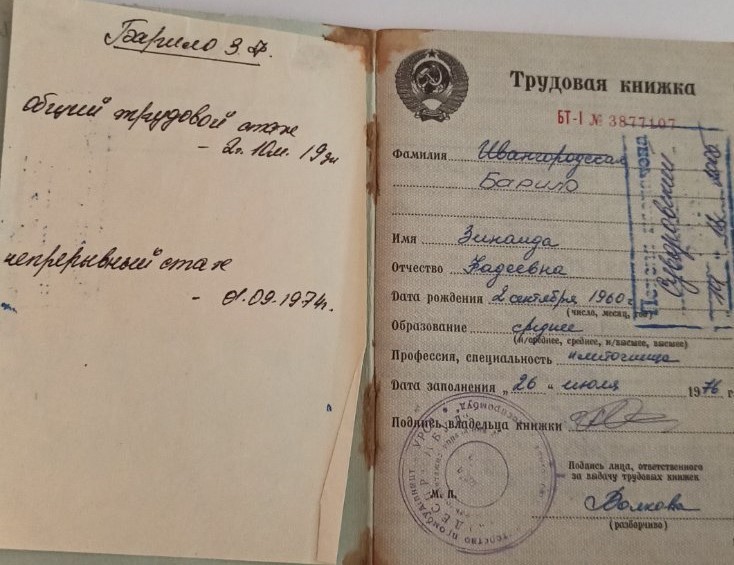 Барило З.Ф.
общий трудовой стаж
- 2г. 10м. 19дн
непрерывный стаж
- 1.09.1974г.
Трудовая книжка
БТ-I № 3877107
Фамилия Ивангородская
Барило
Имя Зинаида
Отчество Фадеевна
Дата рождения 2 сентября 1960г.
(число, месяц, год)
Образование среднее
(н/среднее, среднее, н/высшее, высшее)
Профессия, специальность
Дата заполнения „ 26 " июля 1976 г.
Подпись владельца книжки
Подпись лица, ответственного
за выдачу трудовых книжек
М. П.
Волкова
(разборчиво)